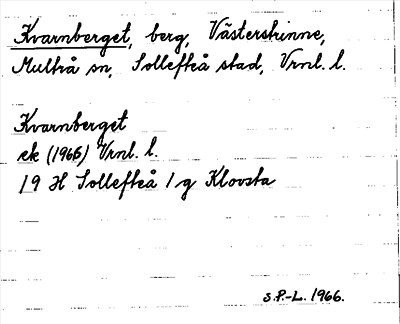 Kvarnberget, berg, Västerstrinne,
Multrå sn, Sollefteå stad, Vrnl. l.
Kvarnberget
ek (1966) Vrnl. l.
19 H Sollefteå 1 g Klovsta
S.P.-L. 1966.